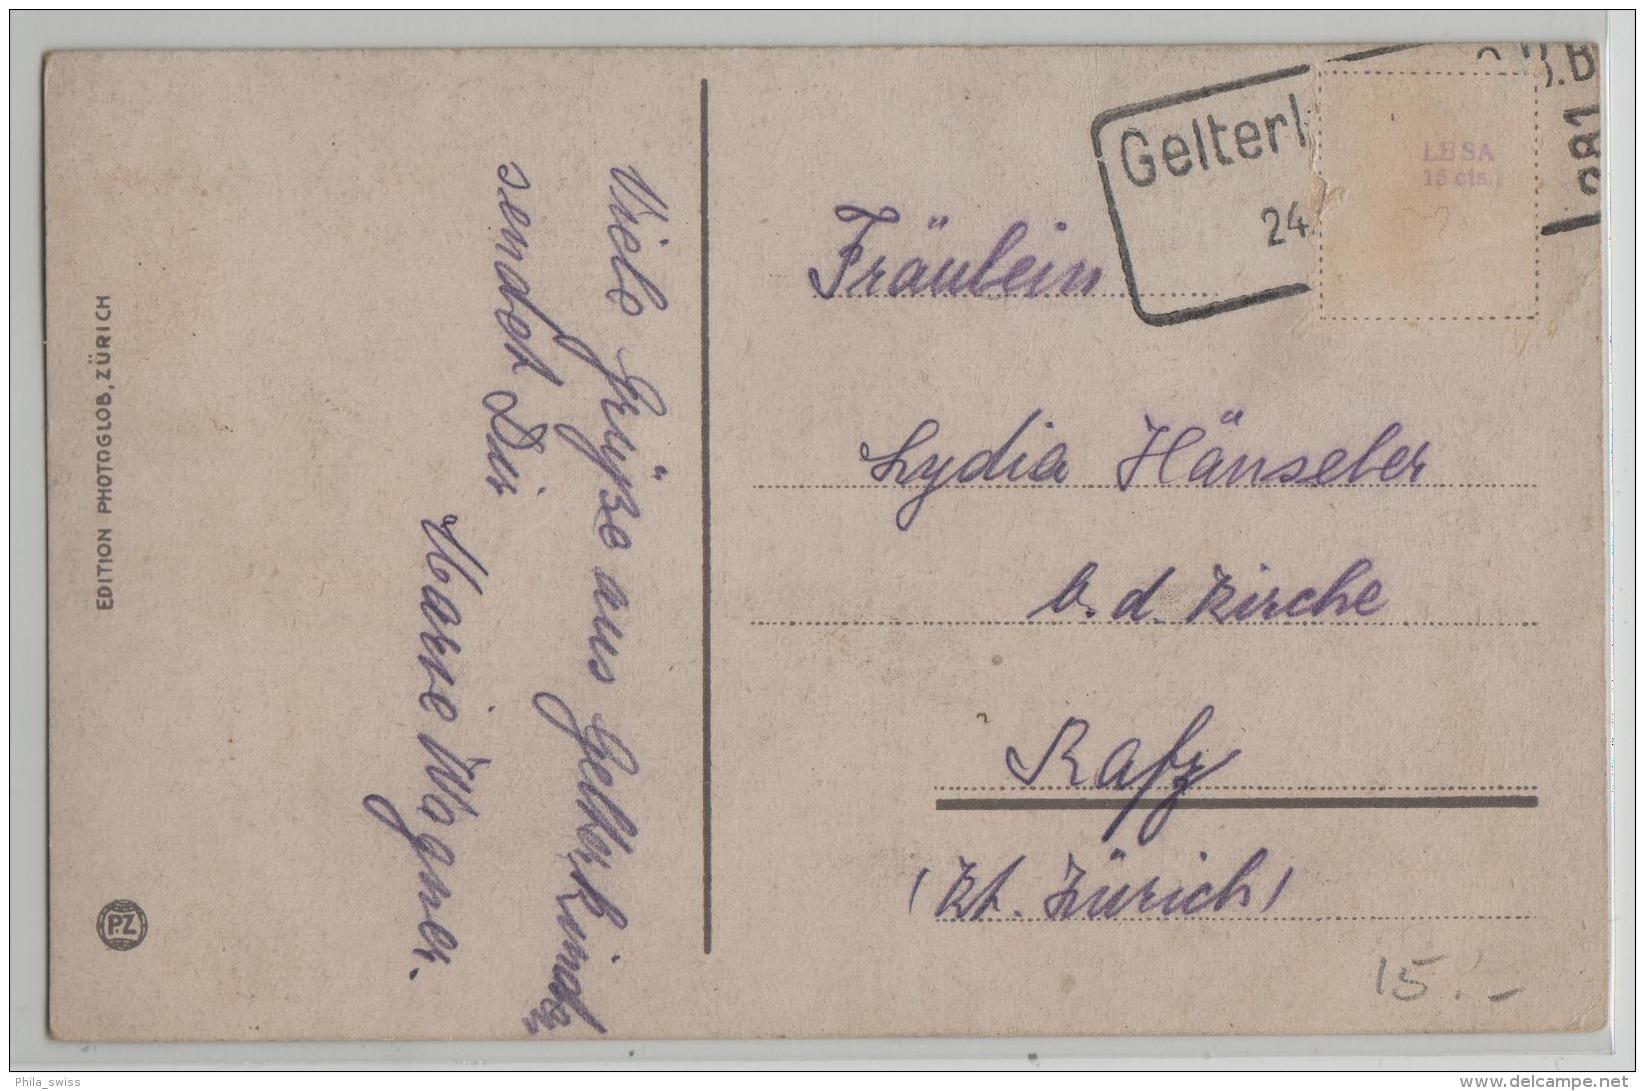 EDITION PHOTOGLOB, ZÜRICH
P.Z
Viele Grüße aus Gelterkinden
sendet Dir
Marie Wagner.
Gelterk
24.
LBSA
15 cts.
Fräulein
Lydia Hänseler
b. d. Kirche
Rafz
(Kt. Zürich)
15.-
Phila_swiss
delcampe.net